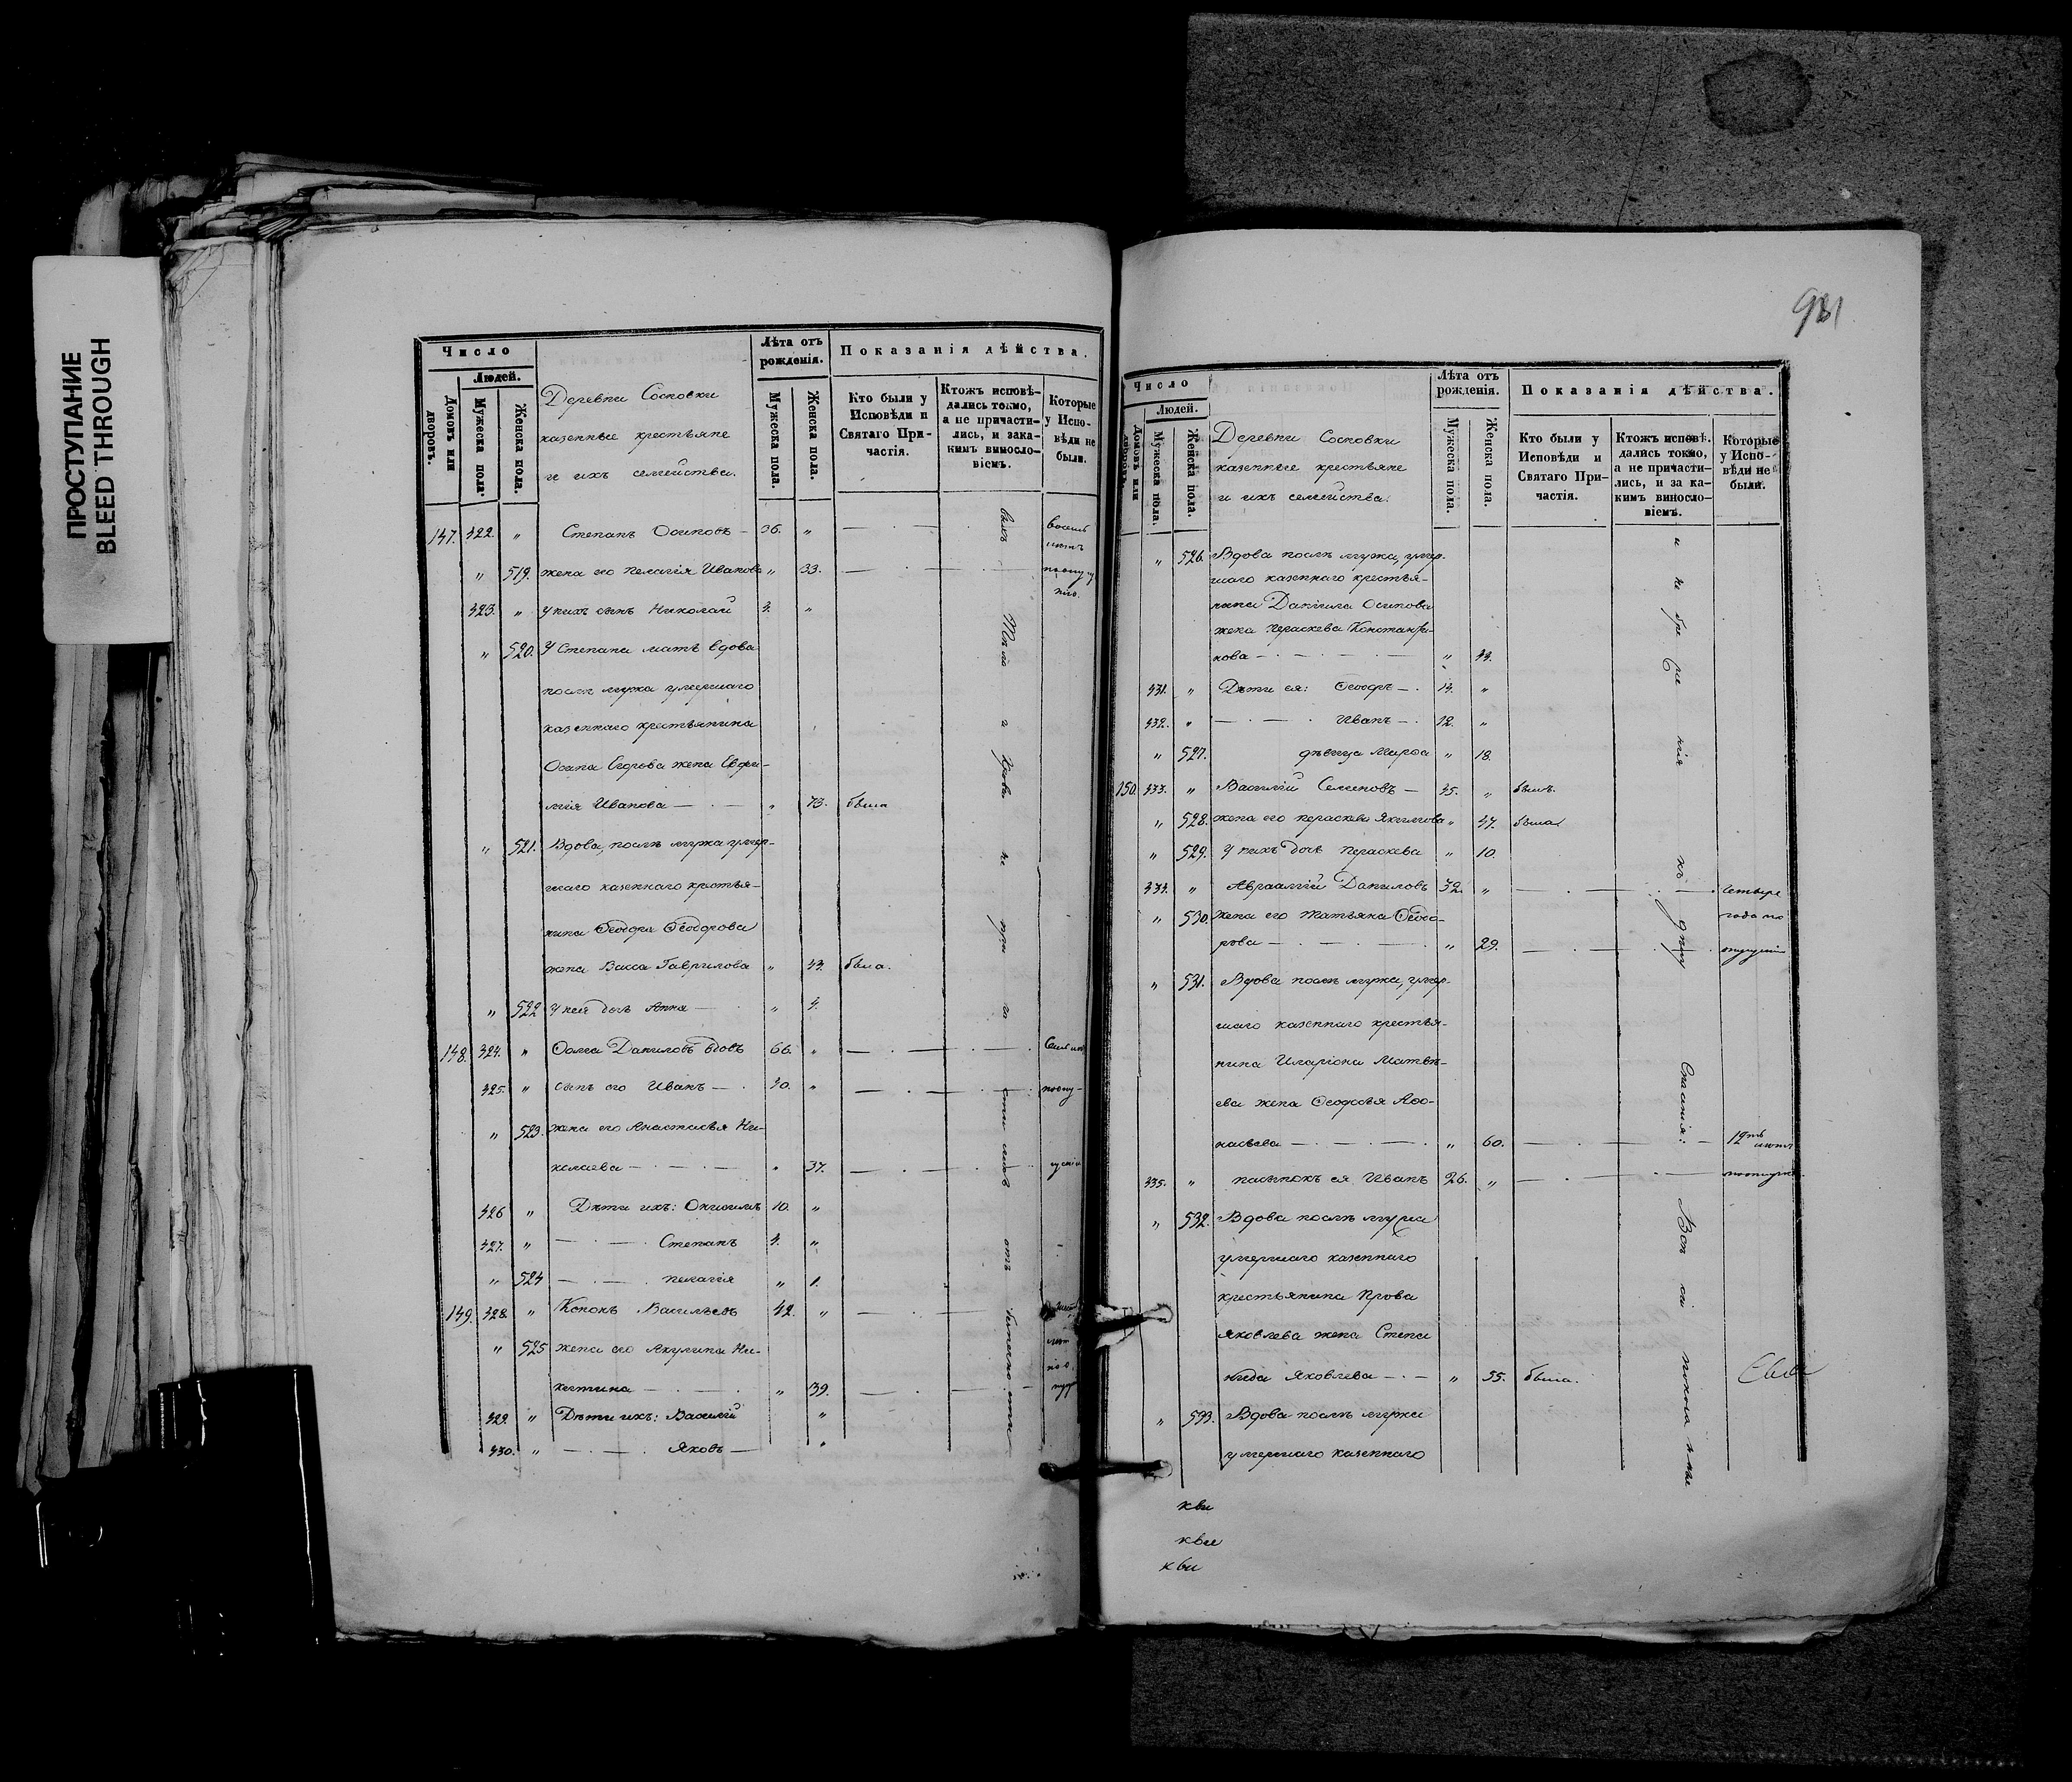 ПРОСТУПАНИЕ
BLEED THROUGH
Число
Людей.
Домовъ или дворовъ.
Мужеска пола.
Женска пола.
Деревни Сосновки
казенные крестьяне
и ихъ семейства.
Лѣта отъ рожденія.
Мужеска пола.
Женска пола.
Показанія дѣйства.
Кто были у Исповѣди и Святаго Причастія.
Ктожъ исповѣдались токмо, а не причастились, и за какимъ винословіемъ.
Которые у Исповѣди не были.
147. 422. " Степанъ Осиповъ — 36. "
" 519. жена его Пелагія Иванова " 33.
423. " У нихъ сынъ Николай 4. "
" 520. У Степана мать вдова
послѣ мужа умершаго
казеннаго крестьянина
Осипа Егорова жена Евфи-
мія Иванова — " 73. была
" 521. Вдова, послѣ мужа умер-
шаго казеннаго крестья-
нина Ѳеодора Ѳеодорова
жена Васса Гаврилова " 43. была.
" 522 У ней дочь Анна — " 4.
148. 424. " Ѳома Даниловъ вдовъ 66. "
425. " сынъ его Иванъ — 40. "
" 523. жена его Анастасья Ни-
колаева — " 37.
426 " Дѣти ихъ: Онисимъ 10. "
427. " — Степанъ 4. "
" 524 — Пелагія " 1.
149. 428. " Кононъ Васильевъ 42. "
" 525 жена его Акулина Ни-
китина — " 39.
429. " Дѣти ихъ: Василій "
430. " — Яковъ — "
931
Число
Людей.
Домовъ или дворовъ.
Мужеска пола.
Женска пола.
Деревни Сосновки
казенные крестьяне
и ихъ семейства.
Лѣта отъ рожденія.
Мужеска пола.
Женска пола.
Показанія дѣйства.
Кто были у Исповѣди и Святаго Причастія.
Ктожъ исповѣ. дались токмо, а не причастились, и за какимъ винословіемъ.
Которые у Исповѣди не были.
" 526. Вдова послѣ мужа, умер-
шаго казеннаго крестья-
нина Даніила Осипова
жена Параскева Константи-
нова — " 44.
431. " Дѣти ея: Ѳеодоръ — 14. "
432. " — Иванъ — 12. "
" 527. дѣвица Марѳа " 18.
150. 433. " Василій Семеновъ — 45. " былъ.
" 528. жена его Параскева Якимова " 47. была
" 529. У нихъ дочь Параскева " 10.
434. " Авраамій Даниловъ 32. " четыре
" 530. жена его Татьяна Ѳеодо- года по
рова — " 29.
" 531. Вдова послѣ мужа, умер-
шаго казеннаго крестья-
нина Иларіона Матвѣ-
ева жена Ѳеодосья Аѳо-
насьева — " 60.
435. " пасынокъ ея Иванъ 26. "
" 532. Вдова послѣ мужа
умершаго казеннаго
крестьянина Прова
Яковлева жена Степа
нида Яковлева — " 55. была.
" 533. Вдова послѣ мужа
умершаго казеннаго
кви
кви
кви